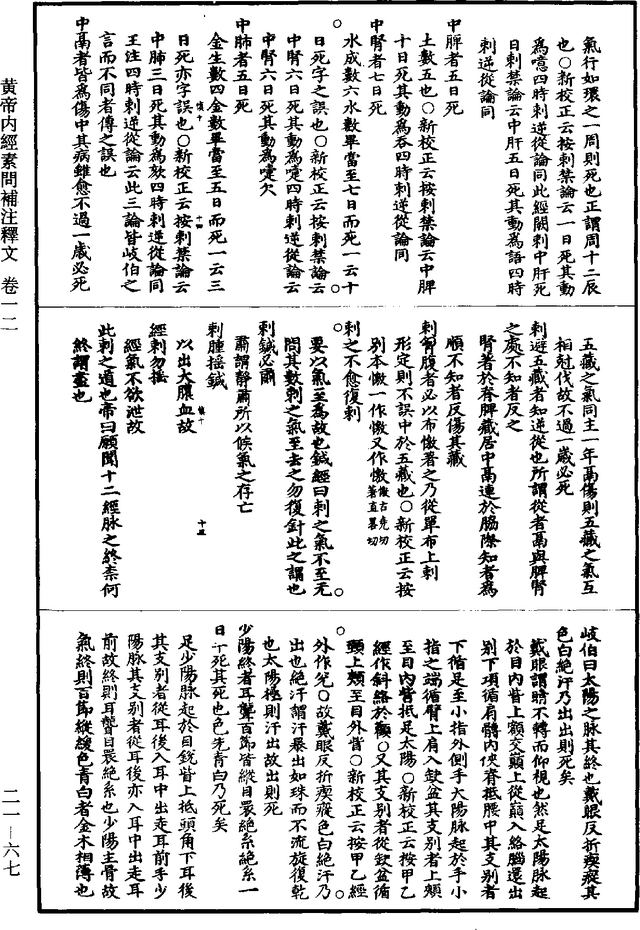 黄帝内經素問補注釋文 卷一二
氣行如環之一周則死也正謂周十二辰
也○新校正云按刺禁論云一日死其動
爲噫四時刺逆從論同此經闕刺中肝死
日刺禁論云中肝五日死其動爲語四時
刺逆從論同
中脾者五日死
土數五也○新校正云按刺禁論云中脾
十日死其動爲吞四時刺逆從論同
中腎者七日死
水成數六水數畢當至七日而死一云十
日死字之誤也○新校正云按刺禁論云
中腎六日死其動爲嚏四時刺逆從論云
中腎六日死其動爲嚏欠
中肺者五日死
金生數四金數畢當至五日而死一云三
日死亦字誤也○新校正云按刺禁論云
中肺三日死其動爲欬四時刺逆從論同
王注四時刺逆從論云此三論皆岐伯之
言而不同者傳之誤也
中鬲者皆爲傷中其病雖愈不過一歲必死
五藏之氣同主一年鬲傷則五藏之氣互
相尅伐故不過一歲必死
刺避五藏者知逆從也所謂從者鬲與脾腎
之處不知者反之
腎著於脊脾藏居中鬲連於脇際知者爲
順不知者反傷其藏
刺胷腹者必以布憿著之乃從單布上刺
形定則不誤中於五藏也○新校正云按
別本憿一作㦎又作撽
刺之不愈復刺
要以氣至爲故也鍼經曰刺之氣不至无
問其數刺之氣至去之勿復針此之謂也
刺鍼必肅
肅謂靜肅所以候氣之存亡
刺腫搖鍼
以出大膿血故
經刺勿搖
經氣不欲泄故
此刺之道也帝曰願聞十二經脉之終柰何
終謂盡也
岐伯曰太陽之脉其終也戴眼反折瘈瘲其
色白絕汗乃出出則死矣
戴眼謂睛不轉而仰視也然足太陽脉起
於目内眥上額交巔上從巔入絡腦還出
别下項循肩髆内俠脊抵腰中其支别者
下循足至小指外側手太陽脉起於手小
指之端循臂上肩入缺盆其支别者上頰
至目内眥抵足太陽○新校正云按甲乙
經作斜絡於顴○又其支别者從缺盆循
頸上頰至目外眥○新校正云按甲乙經
外作兊○故戴眼反折瘈瘲色白絕汗乃
出也絕汗謂汗暴出如珠而不流旋復乾
也太陽極則汗出故出則死
少陽終者耳聾百節皆縱目睘絕系絕系一
日半死其死也色先青白乃死矣
足少陽脉起於目銳眥上抵頭角下耳後
其支别者從耳後入耳中出走耳前手少
陽脉其支别者從耳後亦入耳中出走耳
前故終則耳聾目睘絕系也少陽主骨故
氣終則百節縱緩色青白者金木相薄也
二一—六七